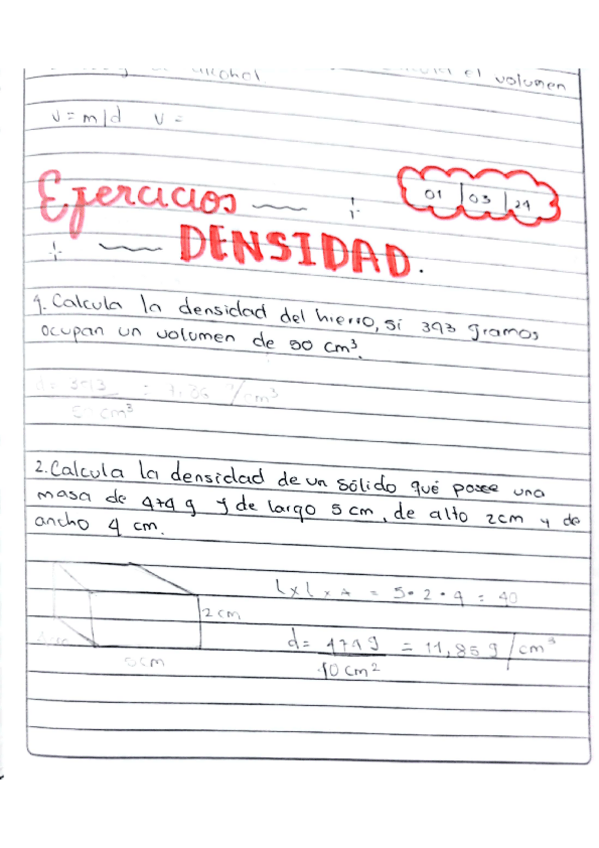 alcohol. el volumen
V = m/d V =
Ejercicios
01 | 03 | 24
DENSIDAD.
1. Calcula la densidad del hierro, si 393 gramos
ocupan un volumen de 50 cm³.
= 7,86 g/cm³
cm³
2. Calcula la densidad de un sólido qué posee una
masa de 474 g y de largo 5 cm, de alto 2cm y de
ancho 4 cm.
L x L x A = 5 • 2 • 4 = 40
2 cm
5cm
d = 474 g = 11,85 g/cm³
40 cm²